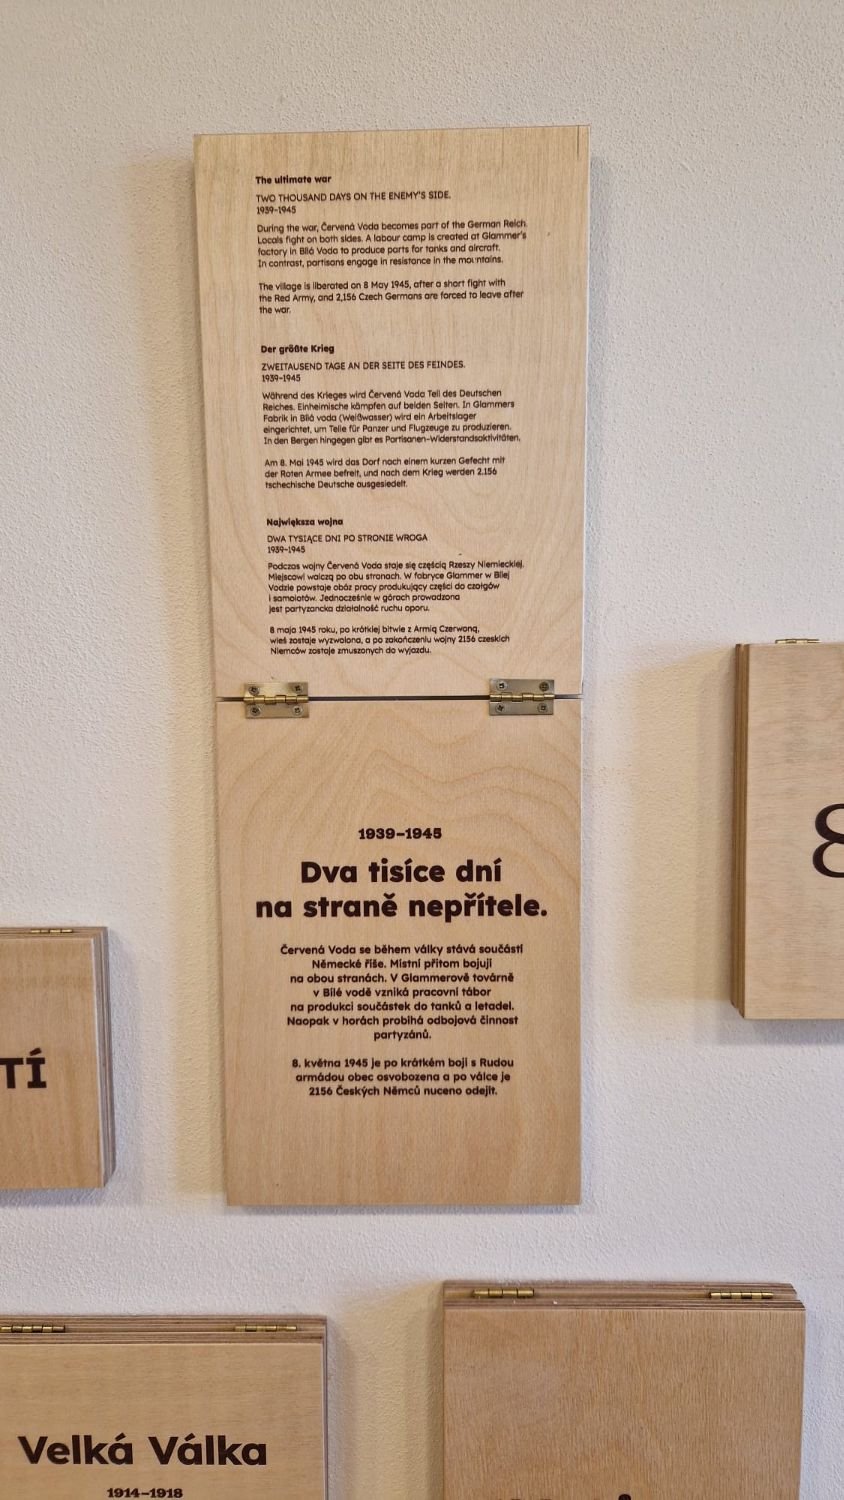 The ultimate war
TWO THOUSAND DAYS ON THE ENEMY'S SIDE.
1939-1945
During the war, Červená Voda becomes part of the German Reich.
Locals fight on both sides. A labour camp is created at Glammer's
factory in Bílá Voda to produce parts for tanks and aircraft.
In contrast, partisans engage in resistance in the mountains.
The village is liberated on 8 May 1945, after a short fight with
the Red Army, and 2,156 Czech Germans are forced to leave after
the war.
Der größte Krieg
ZWEITAUSEND TAGE AN DER SEITE DES FEINDES.
1939-1945
Während des Krieges wird Červená Voda Teil des Deutschen
Reiches. Einheimische kämpfen auf beiden Seiten. In Glammers
Fabrik in Bílá voda (Weißwasser) wird ein Arbeitslager
eingerichtet, um Teile für Panzer und Flugzeuge zu produzieren.
In den Bergen hingegen gibt es Partisanen-Widerstandsaktivitäten.
Am 8. Mai 1945 wird das Dorf nach einem kurzen Gefecht mit
der Roten Armee befreit, und nach dem Krieg werden 2.156
tschechische Deutsche ausgesiedelt.
Największa wojna
DWA TYSIĄCE DNI PO STRONIE WROGA
1939-1945
Podczas wojny Červená Voda staje się częścią Rzeszy Niemieckiej.
Miejscowi walczą po obu stronach. W fabryce Glammer w Bílej
Vodzie powstaje obóz pracy produkujący części do czołgów
i samolotów. Jednocześnie w górach prowadzona
jest partyzancka działalność ruchu oporu.
8 maja 1945 roku, po krótkiej bitwie z Armią Czerwoną,
wieś zostaje wyzwolona, a po zakończeniu wojny 2156 czeskich
Niemców zostaje zmuszonych do wyjazdu.
1939–1945
Dva tisíce dní
na straně nepřítele.
Červená Voda se během války stává součástí
Německé říše. Místní přitom bojují
na obou stranách. V Glammerově továrně
v Bílé vodě vzniká pracovní tábor
na produkci součástek do tanků a letadel.
Naopak v horách probíhá odbojová činnost
partyzánů.
8. května 1945 je po krátkém boji s Rudou
armádou obec osvobozena a po válce je
2156 Českých Němců nuceno odejít.
8
TÍ
Velká Válka
1914–1918